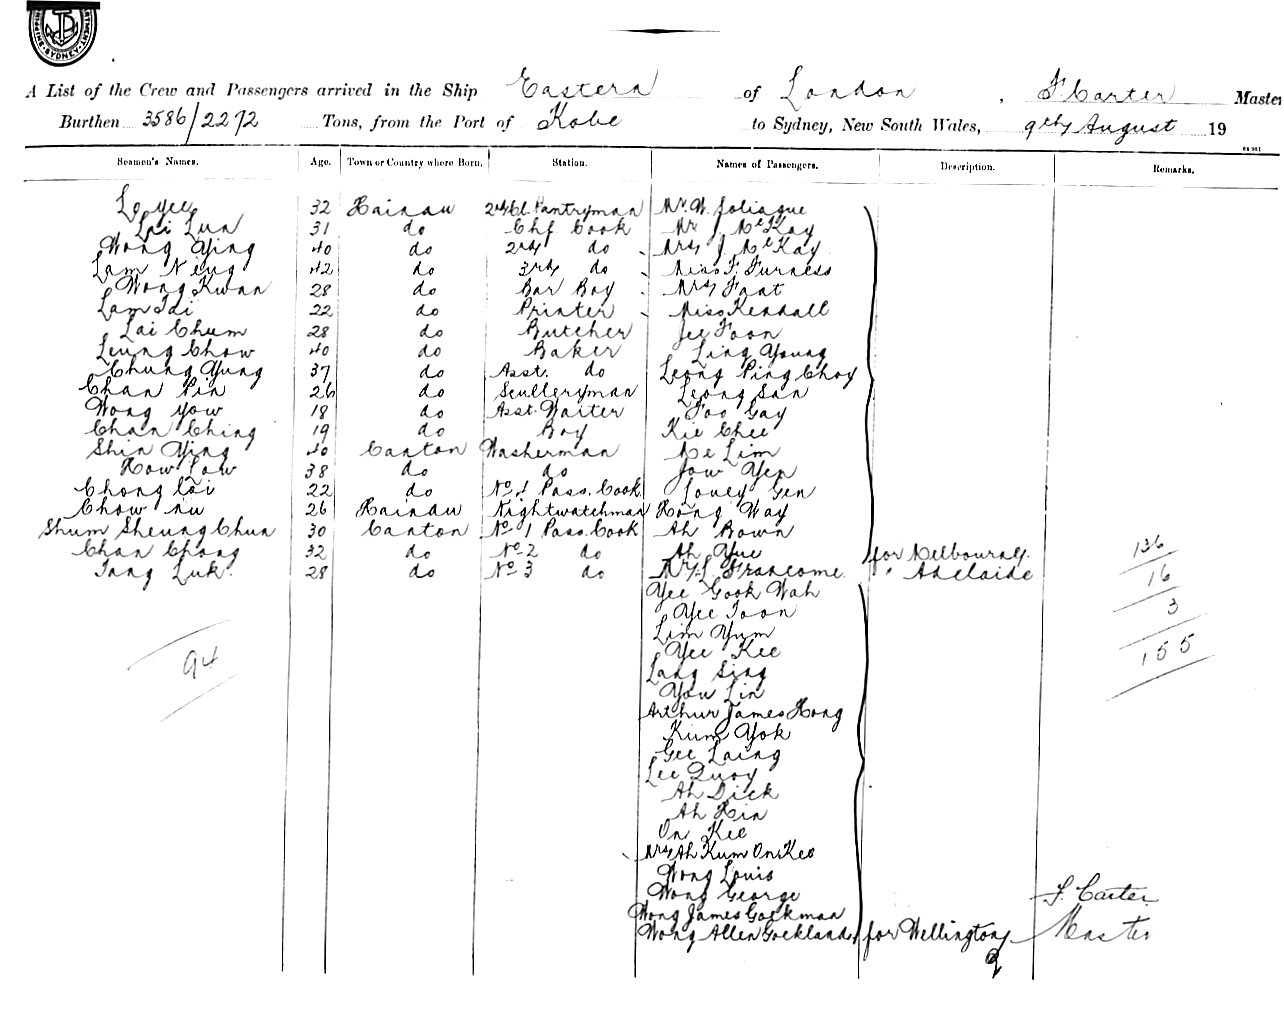 SHIPPING DEPARTMENT SYDNEY
A List of the Crew and Passengers arrived in the Ship Eastern of London, F. Carter Master
Burthen 3586/2272 Tons, from the Port of Kobe to Sydney, New South Wales, 9th August 19
Seamen's Names. Age. Town or Country where Born. Station. Names of Passengers. Description. Remarks.
Lo Yee 32 Hainau 2nd Cl. Pantryman Mr. W. Soliague
Lai Lun 31 do Chf Cook Mr J. McKay
Wong Ying 40 do 2nd do Mrs J. McKay
Lam Neng 42 do 3rd do Miss F. Furness
Wong Kwan 28 do Bar Boy Mrs Fant
Lam Tai 22 do Printer Miss Kendall
Lai Chum 28 do Butcher Jee Foon
Leung Chow 40 do Baker Ling Young
Chung Yung 37 do Asst. do Leong Ping Choy
Chan Pin 26 do Sculleryman Leong San
Wong Yow 18 do Asst. Waiter Foo Gay
Chan Ching 19 do Boy Kie Chee
Shin Ying 40 Canton Washerman Ae Lim
How Low 38 do do Jow Yen
Chong Coi 22 do No. 1 Pass. Cook Louey Gen
Chow Nu 26 Hainau Nightwatchman Hong Way
Shum Sheung Chun 30 Canton No. 1 Pass. Cook Ah Bown
Chan Chong 32 do No. 2 do Ah Yue for Melbourne 136
Tang Luk. 28 do No. 3 do Mrs L. Francome " Adelaide 16
Yee Gook Wah
Yee Toon 3
Lim Yum
Yee Kee 155
94 Lang Sing
You Lin
Arthur James Hong
Kum Yok
Gee Laing
Lee Quoy
Ah Dick
Ah Hin
On Kee
Mrs Ah Kum On Kee
Wong Louis
Wong George F. Carter
Wong James Gockman Master
Wong Allen Gockland for Wellington